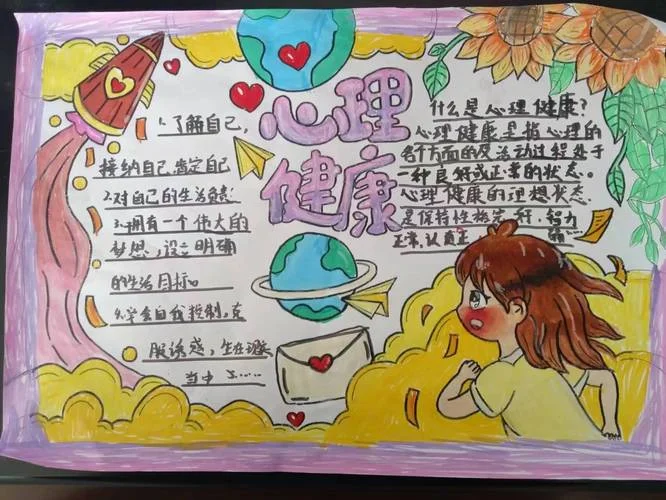 心理
健康
1.了解自己,
接纳自己肯定自己
2.对自己的生活负责
3.拥有一个伟大的
梦想,设立明确
的生活目标。
4.学会自我控制,克
服诱惑,生在
当中
什么是心理健康?
心理健康是指心理的
各个方面的及活动过程处于
一种良好或正常的状态。
心理健康的理想状态
是保持性格完好、智力
正常、认真正